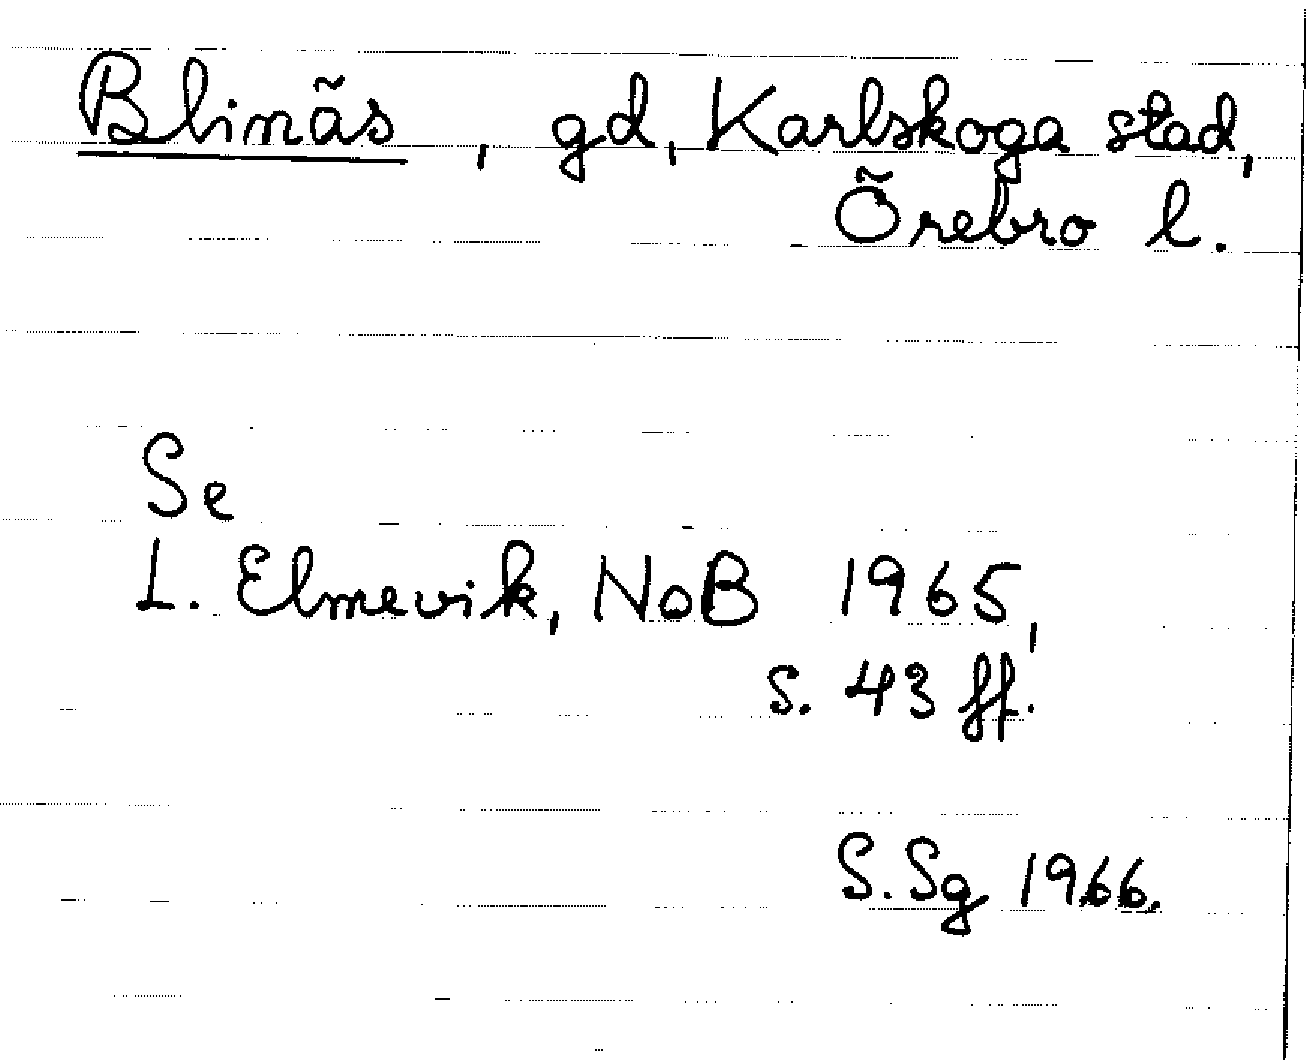 Blinäs, gd, Karlskoga stad,
Örebro l.
Se
L. Elmevik, NoB 1965,
s. 43 ff.
S. Sg 1966.